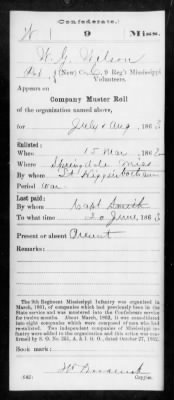 Confederate.
W 9 Miss.
W. G. Wilson
Pvt, (New) Co. C, 9 Reg't Mississippi
Volunteers.
Appears on
Company Muster Roll
of the organization named above,
for July & Aug, 1863
Enlisted:
When 15 Mar, 1862
Where Springdale Miss
By whom Lt
Period War
Last paid:
By whom Capt Smith
To what time 30 June, 1863
Present or absent Present
Remarks:
The 9th Regiment Mississippi Infantry was organized in
March, 1861, of companies which had previously been in the
State service and was mustered into the Confederate service
for twelve months. About March, 1862, it was consolidated
into eight companies which were composed of men who had
re-enlisted. Two independent companies of Mississippi In-
fantry were added to the organization and this action was
confirmed by S. O. No. 251, A. & I. G. O., dated October 27, 1862.
Book mark:
(642)
Copyist.